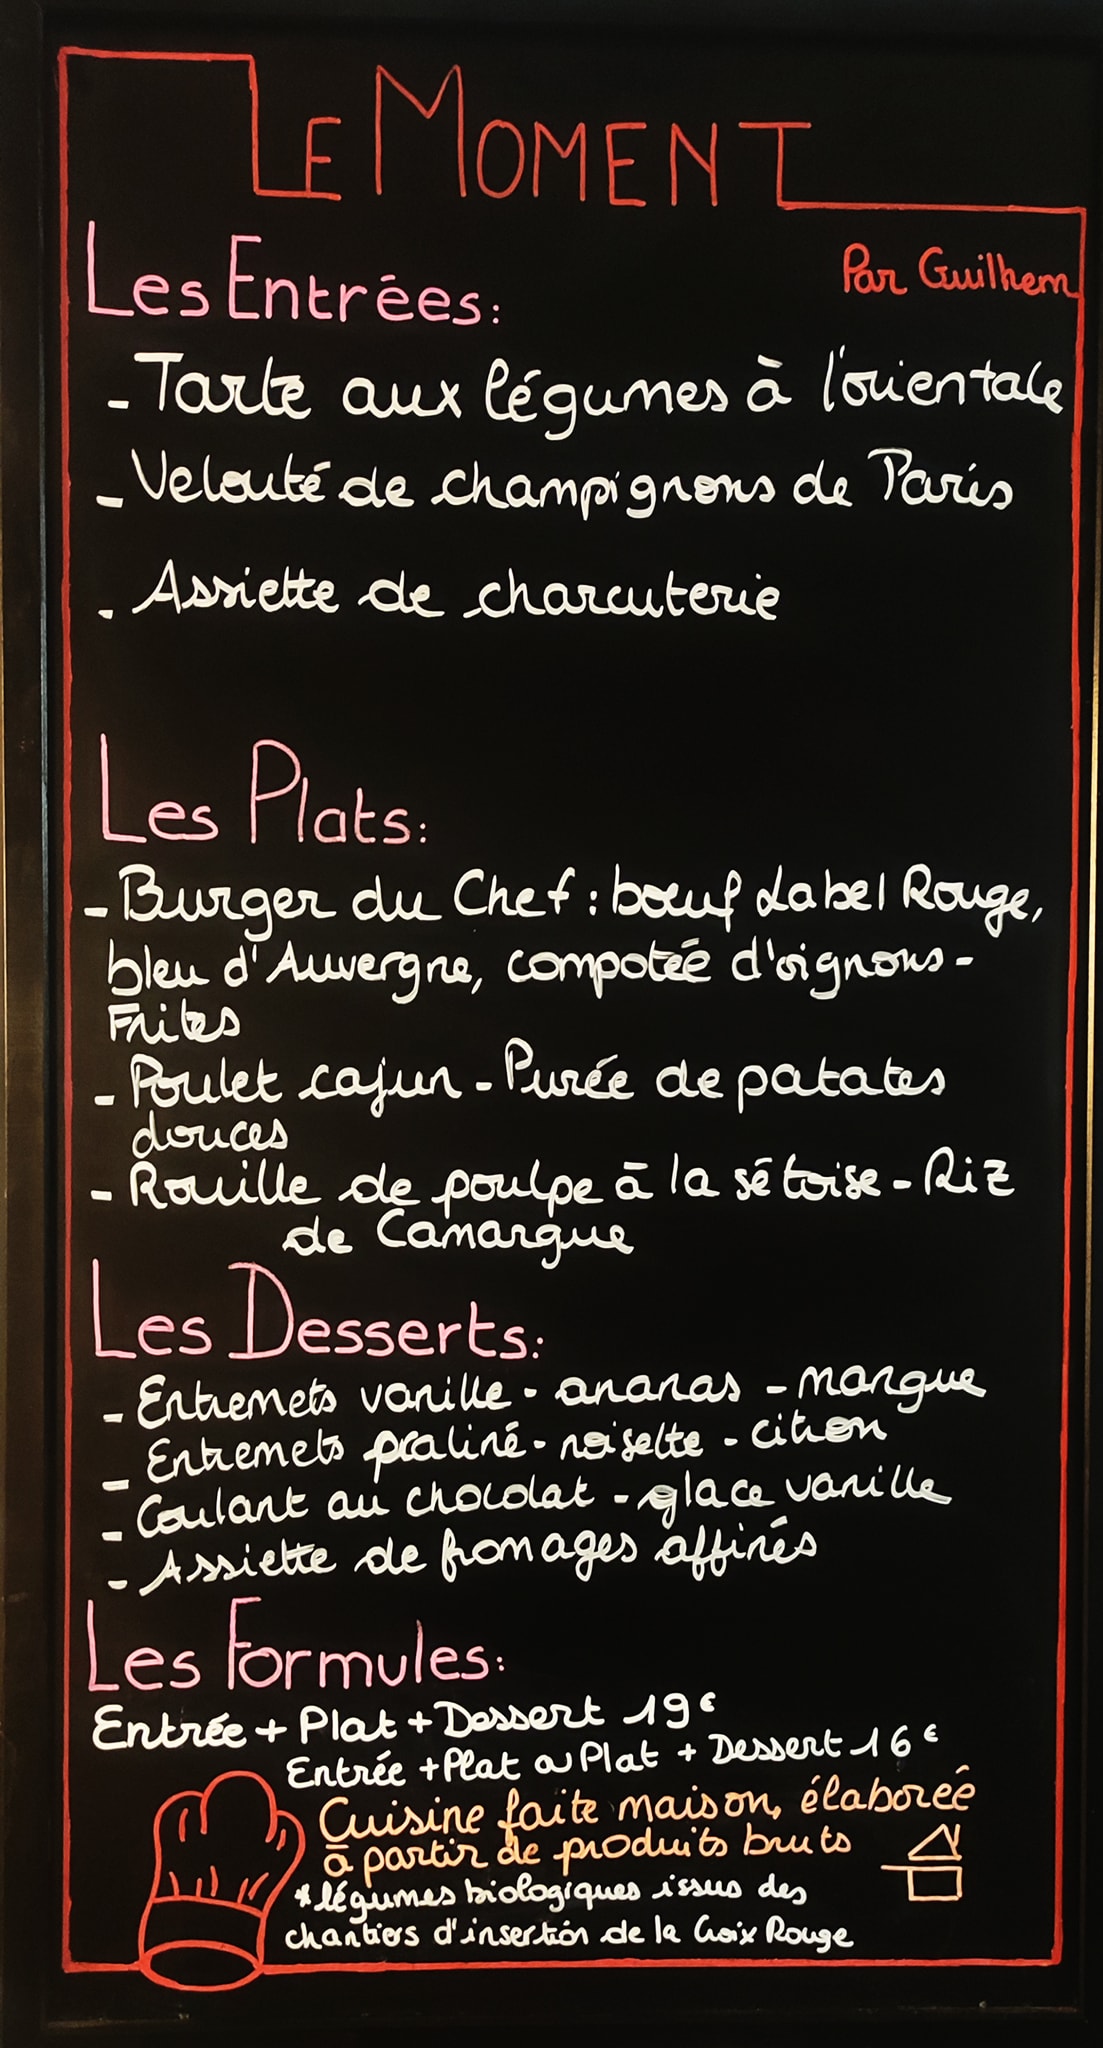 LE MOMENT
Par Guilhem
Les Entrées:
- Tarte aux légumes à l'orientale
- Velouté de champignons de Paris
- Assiette de charcuterie
Les Plats:
- Burger du Chef : bœuf Label Rouge,
bleu d'Auvergne, compotée d'oignons -
Frites
- Poulet cajun - Purée de patates
douces
- Rouille de poulpe à la sétoise - Riz
de Camargue
Les Desserts:
- Entremets vanille - ananas - mangue
- Entremets praliné - noisette - citron
- Coulant au chocolat - glace vanille
- Assiette de fromages affinés
Les Formules:
Entrée + Plat + Dessert 19€
Entrée + Plat ou Plat + Dessert 16€
Cuisine faite maison, élaborée
à partir de produits bruts
* légumes biologiques issus des
chantiers d'insertion de la Croix Rouge